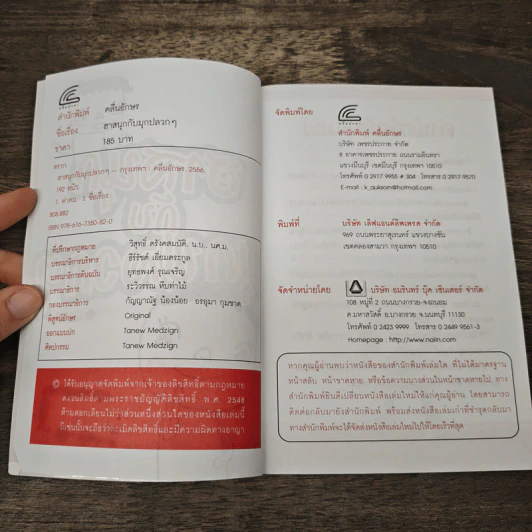 สำนักพิมพ์ คลื่นอักษร
ชื่อเรื่อง ฮาสนุกกับมุกปลวก ๆ
ราคา 185 บาท
ฮาสนุกกับมุกปลวกๆ -- กรุงเทพฯ : คลื่นอักษร, 2556.
192 หน้า
1. คำคม 2. ชื่อเรื่อง
808.882
ISBN 978-616-7350-82-0
ที่ปรึกษากฎหมาย วิสุทธิ์ ตรังคสมบัติ, น.บ., นศ.ม.
บรรณาธิการบริหาร ธีร์รัชต์ เอี่ยมตระกูล
บรรณาธิการต้นฉบับ ยุทธพงศ์ รุณเจริญ
บรรณาธิการ ระวิวรรณ ทิบท่าไม้
กองบรรณาธิการ กัญญาณัฐ น้องน้อย อรอุมา กุมขาด
พิสูจน์อักษร Original
ออกแบบปก Tanew Medzign
ศิลปกรรม Tanew Medzign
© ได้รับอนุญาตจัดพิมพ์จากเจ้าของลิขสิทธิ์ตามกฎหมาย
สงวนลิขสิทธิ์ตามพระราชบัญญัติลิขสิทธิ์ พ.ศ. 2548
ห้ามลอกเลียนไม่ว่าส่วนหนึ่งส่วนใดของหนังสือเล่มนี้
มิเช่นนั้นจะถือว่าละเมิดลิขสิทธิ์และมีความผิดทางอาญา
จัดพิมพ์โดย
สำนักพิมพ์ คลื่นอักษร
บริษัท เพชรประกาย จำกัด
8 อาคารเพชรประกาย ถนนรามอินทรา
แขวงมีนบุรี เขตมีนบุรี กรุงเทพฯ 10510
โทรศัพท์ 0 2917 9955 # 304 โทรสาร 0 2917-9570
E-mail : k_auksorn@hotmail.com
พิมพ์ที่ บริษัท เลิฟแอนด์ลิพเพรส จำกัด
969 ถนนพระยาสุเรนทร์ แขวงบางชัน
เขตคลองสามวา กรุงเทพฯ 10510
จัดจำหน่ายโดย บริษัท อมรินทร์ บุ๊ค เซ็นเตอร์ จำกัด
108 หมู่ที่ 2 ถนนบางกรวย-จงถนอม
ต.มหาสวัสดิ์ อ.บางกรวย จ.นนทบุรี 11130
โทรศัพท์ 0 2423 9999 โทรสาร 0 2449 9561-3
Homepage : http://www.naiin.com
หากคุณผู้อ่านพบว่าหนังสือของสำนักพิมพ์เล่มใด ที่ไม่ได้มาตรฐาน
หน้าสลับ หน้าขาดหาย หรือข้อความบางส่วนในหน้าขาดหายไป ทาง
สำนักพิมพ์ยินดีเปลี่ยนหนังสือเล่มใหม่ให้แก่คุณผู้อ่าน โดยสามารถ
ติดต่อกลับมายังสำนักพิมพ์ พร้อมส่งหนังสือเล่มเก่าที่ชำรุดกลับมา
ทางสำนักพิมพ์จะได้จัดส่งหนังสือเล่มใหม่ไปให้โดยเร็วที่สุด